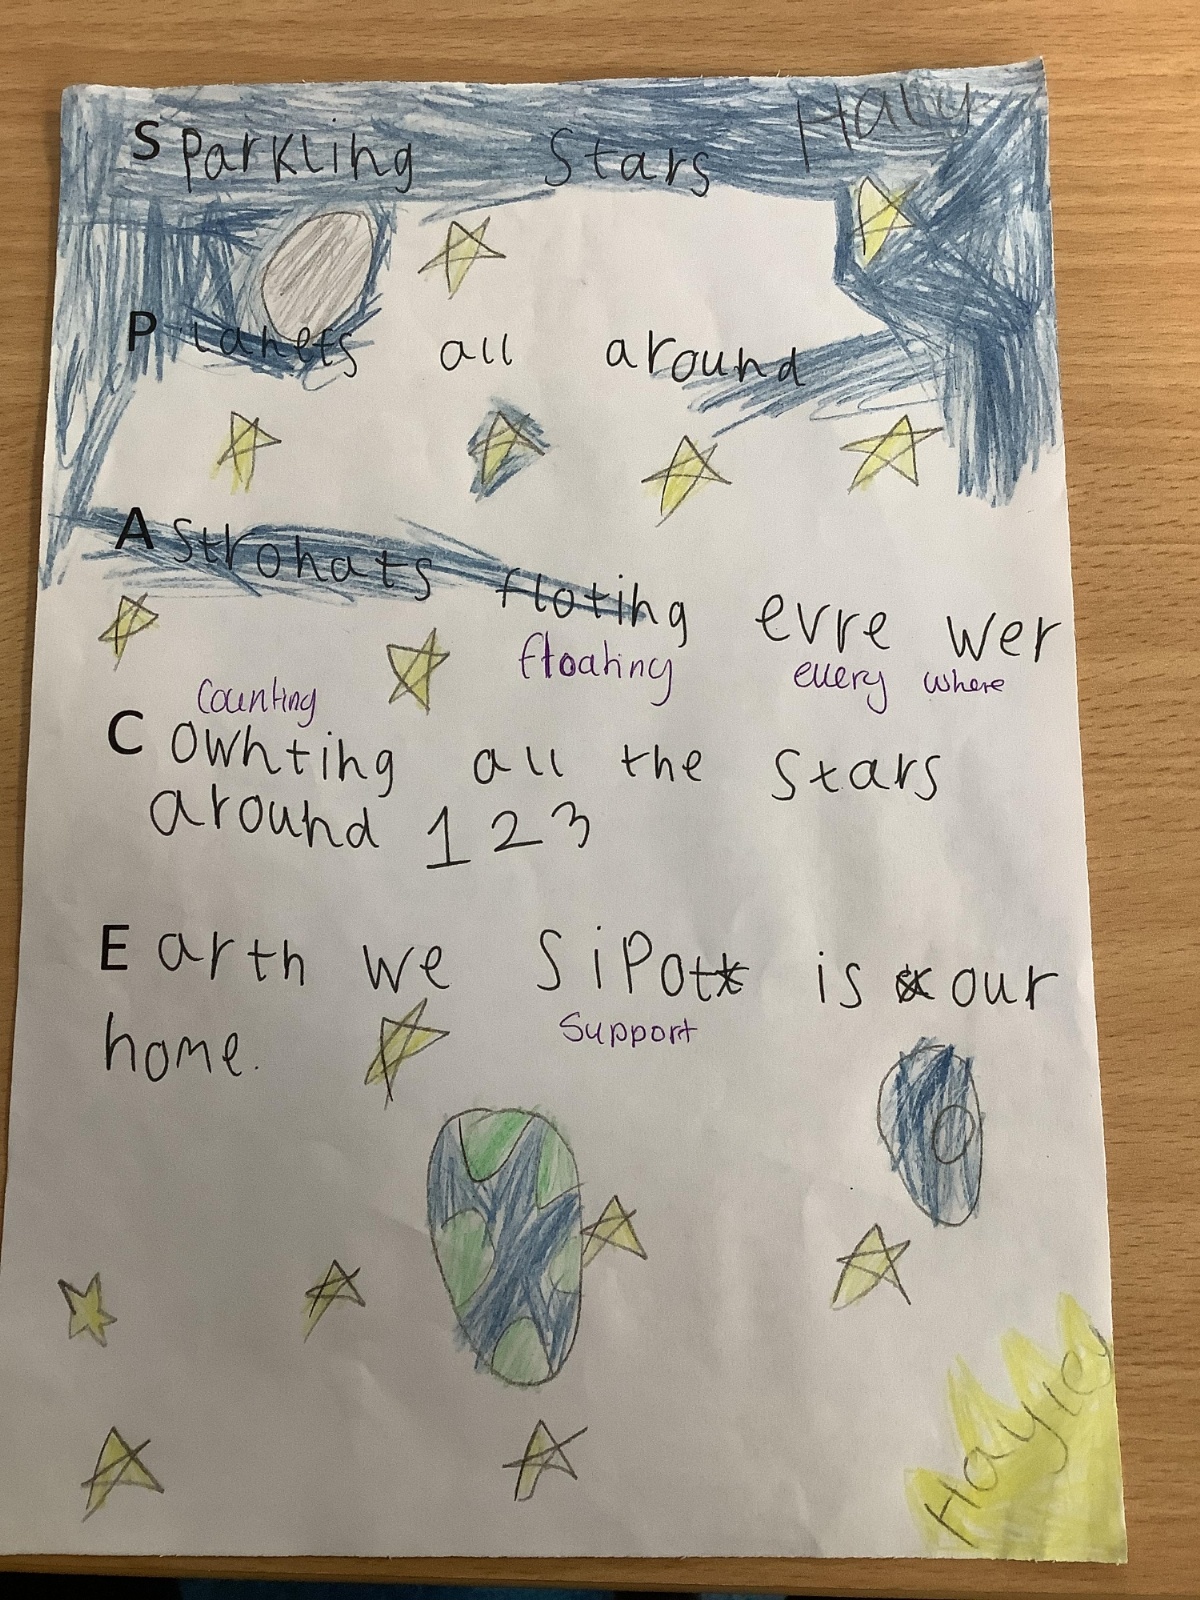 Hally
Sparkling Stars
Planets all around
Astronats floting evre wer
floating every where
Counting
Cownting all the stars
around 123
Earth we Sipot is our
Support
home.
Hayley